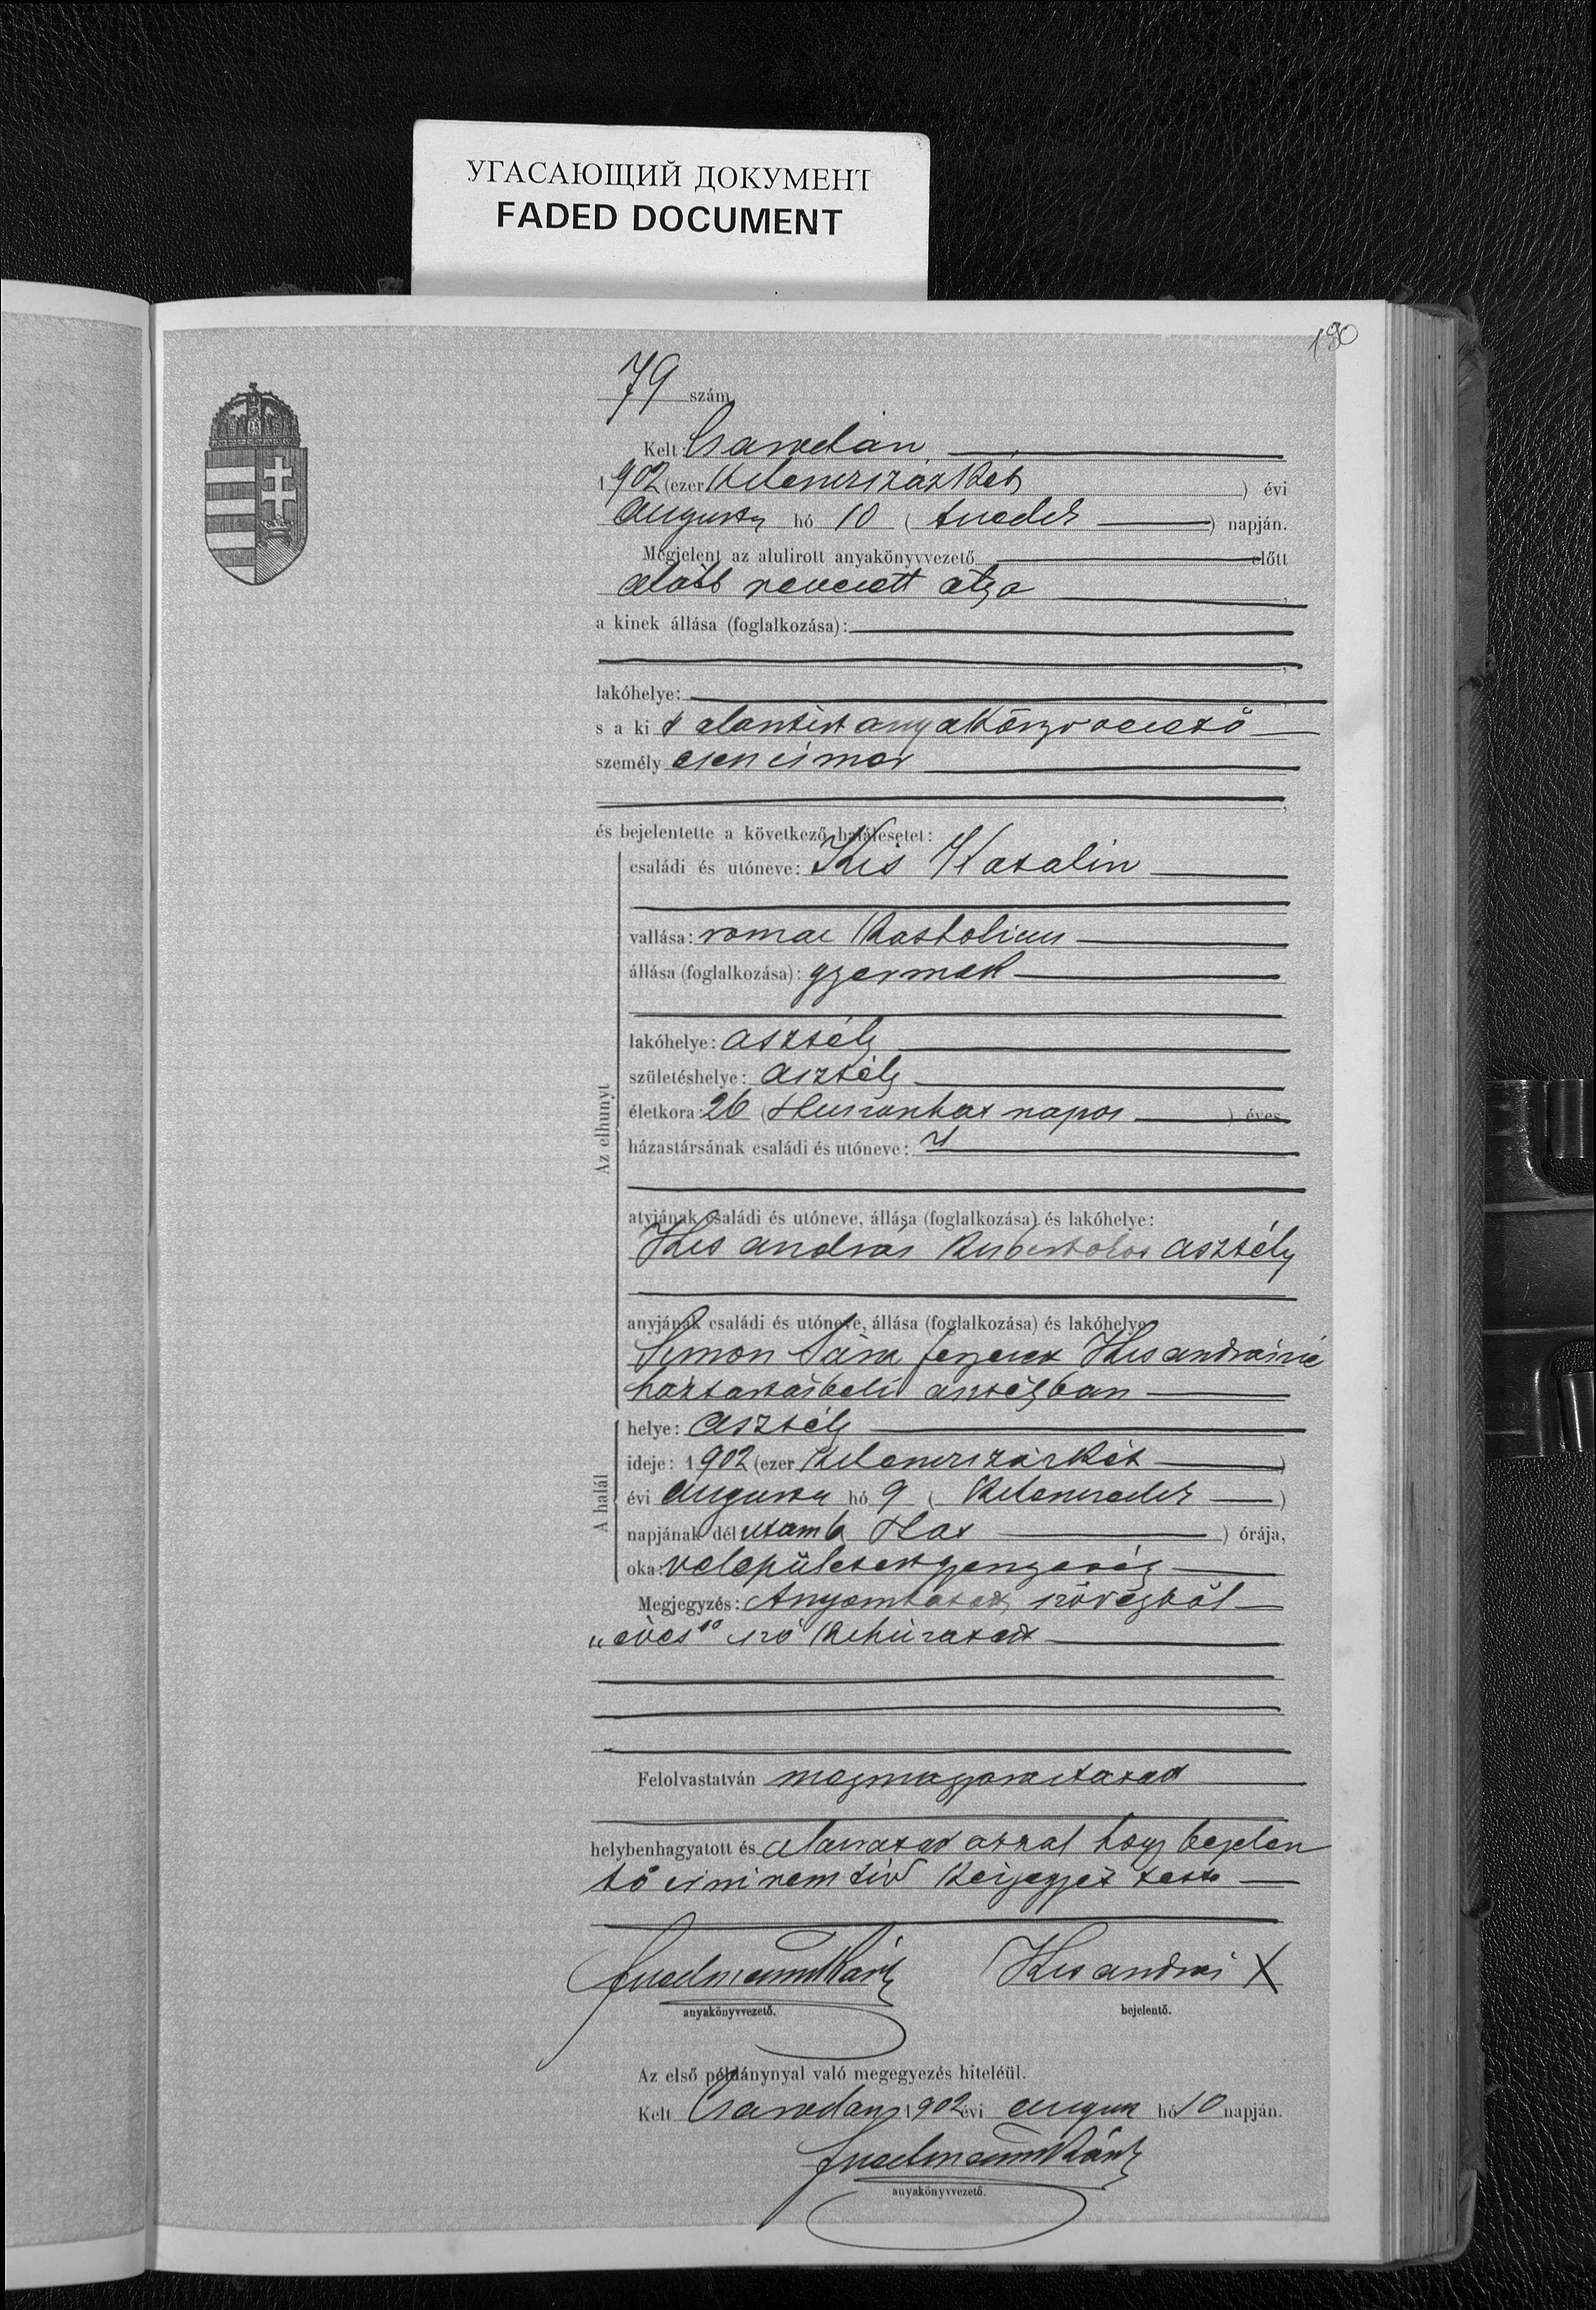 УГАСАЮЩИЙ ДОКУМЕНТ
FADED DOCUMENT
190
79 szám.
Kelt: Csarodán,
1902 (ezer kilenczszázkét) évi
augusz hó 10 (tizedik) napján.
Megjelent az alulirott anyakönyvvezető előtt
alább nevezett atya
a kinek állása (foglalkozása):
lakóhelye:
s a ki t alantirt anyakönyvvezető
személy esen ismer
és bejelentette a következő halálesetet:
Az elhunyt
családi és utóneve: Kis Katalin
vallása: romai katholicus
állása (foglalkozása): gyermek
lakóhelye: asztély
születéshelye: asztély
életkora: 26 (Huszonhat napos) éves
házastársának családi és utóneve:
atyjának családi és utóneve, állása (foglalkozása) és lakóhelye:
Kis andrás kisbirtokos asztély
anyjának családi és utóneve, állása (foglalkozása) és lakóhelye
Simon Sára férjezet Kis andrásné
háztartásbeli asztélyban
A halál
helye: asztély
ideje: 1902 (ezer kilenczszázkét)
évi augusz hó 9 (kilenczedik)
napjának délutam 6 Hat) órája,
oka: veleszületett gyengeség
Megjegyzés: A nyomtatott szövegből
„éves" szó kihúzatott
Felolvastatván megmagyaráztatott
helybenhagyatott és alairatott azzal hogy bejelen
tő irni nem tud kézjegyét tette
anyakönyvvezető.
Kis andrás X
bejelentő.
Az első példánynyal való megegyezés hiteléül.
Kelt Csarodan, 1902 évi augusz hó 10 napján.
anyakönyvvezető.